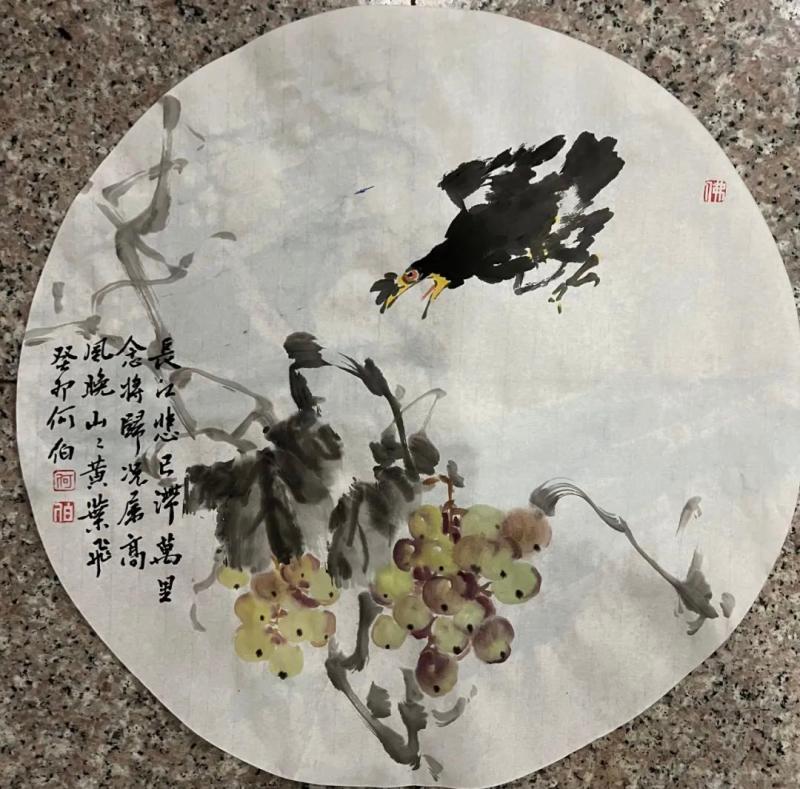 長江悲已滯萬里
念將歸況屬高
風晚山〻黃葉飛
癸卯何伯
何
伯
佛